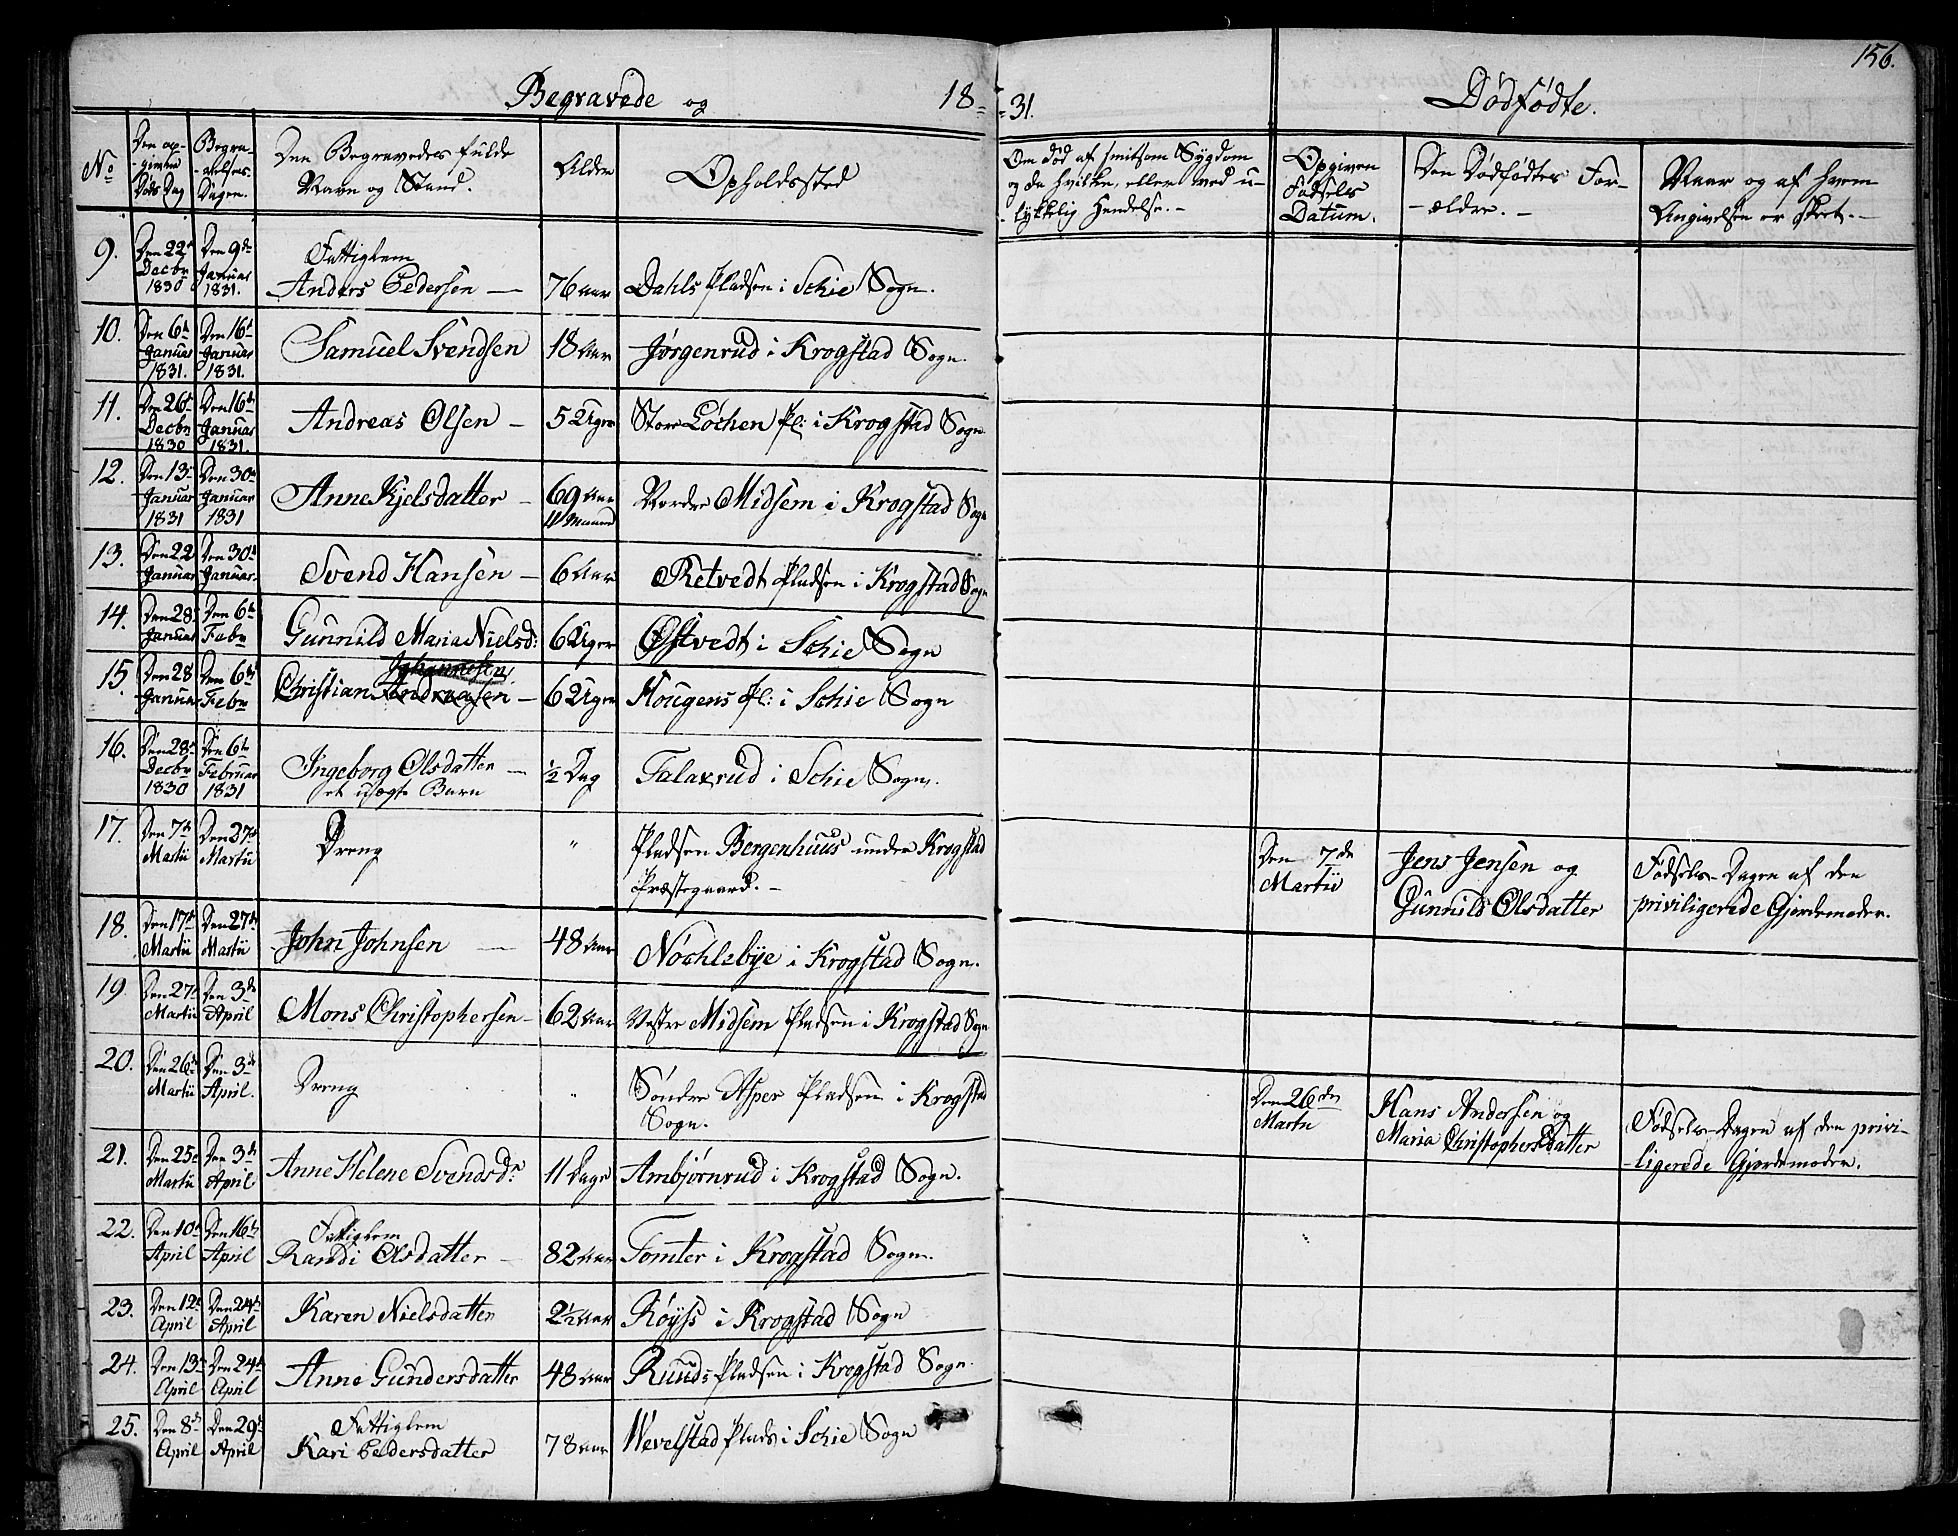 156.
Begravede og 18-
-31. Dødfødte.
No
Den op-
-givne
Døds Dag
Begra-
-velses-
Dagen.
Den Begravedes fulde
Navn og Stand.
Alder
Opholdssted
Om død af smitsom Sygdom
og da hvilken, eller ved u-
-lykkelig Hendelse.-
Opgiven
Fødsels
Datum.
Den Dødfødtes For-
-ældre.-
Naar og af hvem
Angivelsen er skeet.-
9. Den 22de Decbr 1830 Den 9de Januar 1831. Fattiglem
Anders Pedersen — 76 Aar Dahls Pladsen i Schie Sogn.
10. Den 6te Januar 1831. Den 16de Januar 1831. Samuel Svendsen 18 Aar Jørgenrud i Krogstad Sogn.
11. Den 26de Decbr 1830 Den 16de Januar 1831. Andreas Olsen — 5 Uger Store Løchen Pl: i Krogstad Sogn
12. Den 13de Januar 1831 Den 30te Januar 1831 Anne Kjelsdatter — 69 Aar
11 Maaned Nordre Midsem i Krogstad Sogn
13. Den 22 Januar Den 30te Januar. Svend Hansen — 6 Aar Retvedt Pladsen i Krogstad Sogn
14. Den 28 Januar Den 6te Febr Gunnild Maria Nielsd: 6 Uger Østvedt i Schie Sogn
15. Den 28 Januar Den 6te Febr Johannesen
Christian Andreasen — 6 Uger Hougens Pl: i Schie Sogn
16. Den 28de Decbr 1830 Den 6te Februar 1831 Ingeborg Olsdatter —
et uægte Barn ½ Dag Falaxrud i Schie Sogn.
17. Den 7de Martii Den 27de Martii Dreng " Pladsen Bergenhuus under Krogstad
Præstegaard.- Den 7de
Martii Jens Jensen og
Gunnild Olsdatter Fødsels-Dagen af den
priviligerede Gjordemoder.
18. Den 17de Martii Den 27de Martii John Johnsen — 48 Aar Nøchlebye i Krogstad Sogn.
19 Den 27de Martii Den 3de April Mons Christophersen — 62 Aar Vestre Midsem Pladsen i Krogstad Sogn
20. Den 26de Martii Den 3de April. Dreng " Søndre Asper Pladsen i Krogstad
Sogn. Den 26de
Martii Hans Andersen og
Maria Christophersdatter Fødsels-Dagen af den privi-
-ligerede Gjordemoder.
21. Den 25de Martii Den 3de April Anne Helene Svendsdr 11 Dage Ambjørnrud i Krogstad Sogn.
22. Den 10de April Den 16de April Fattiglem
Randi Olsdatter — 82 Aar Tomter i Krogstad Sogn.
23. Den 12te April Den 24de April Karen Nielsdatter 2½ Aar Røyss i Krogstad Sogn
24. Den 13de April Den 24de April Anne Gundersdatter 48 Aar Ruuds Pladsen i Krogstad Sogn.
25. Den 8de April Den 29de April Fattiglem
Kari Pedersdatter 78 Aar Wevelstad Plads i Schie Sogn